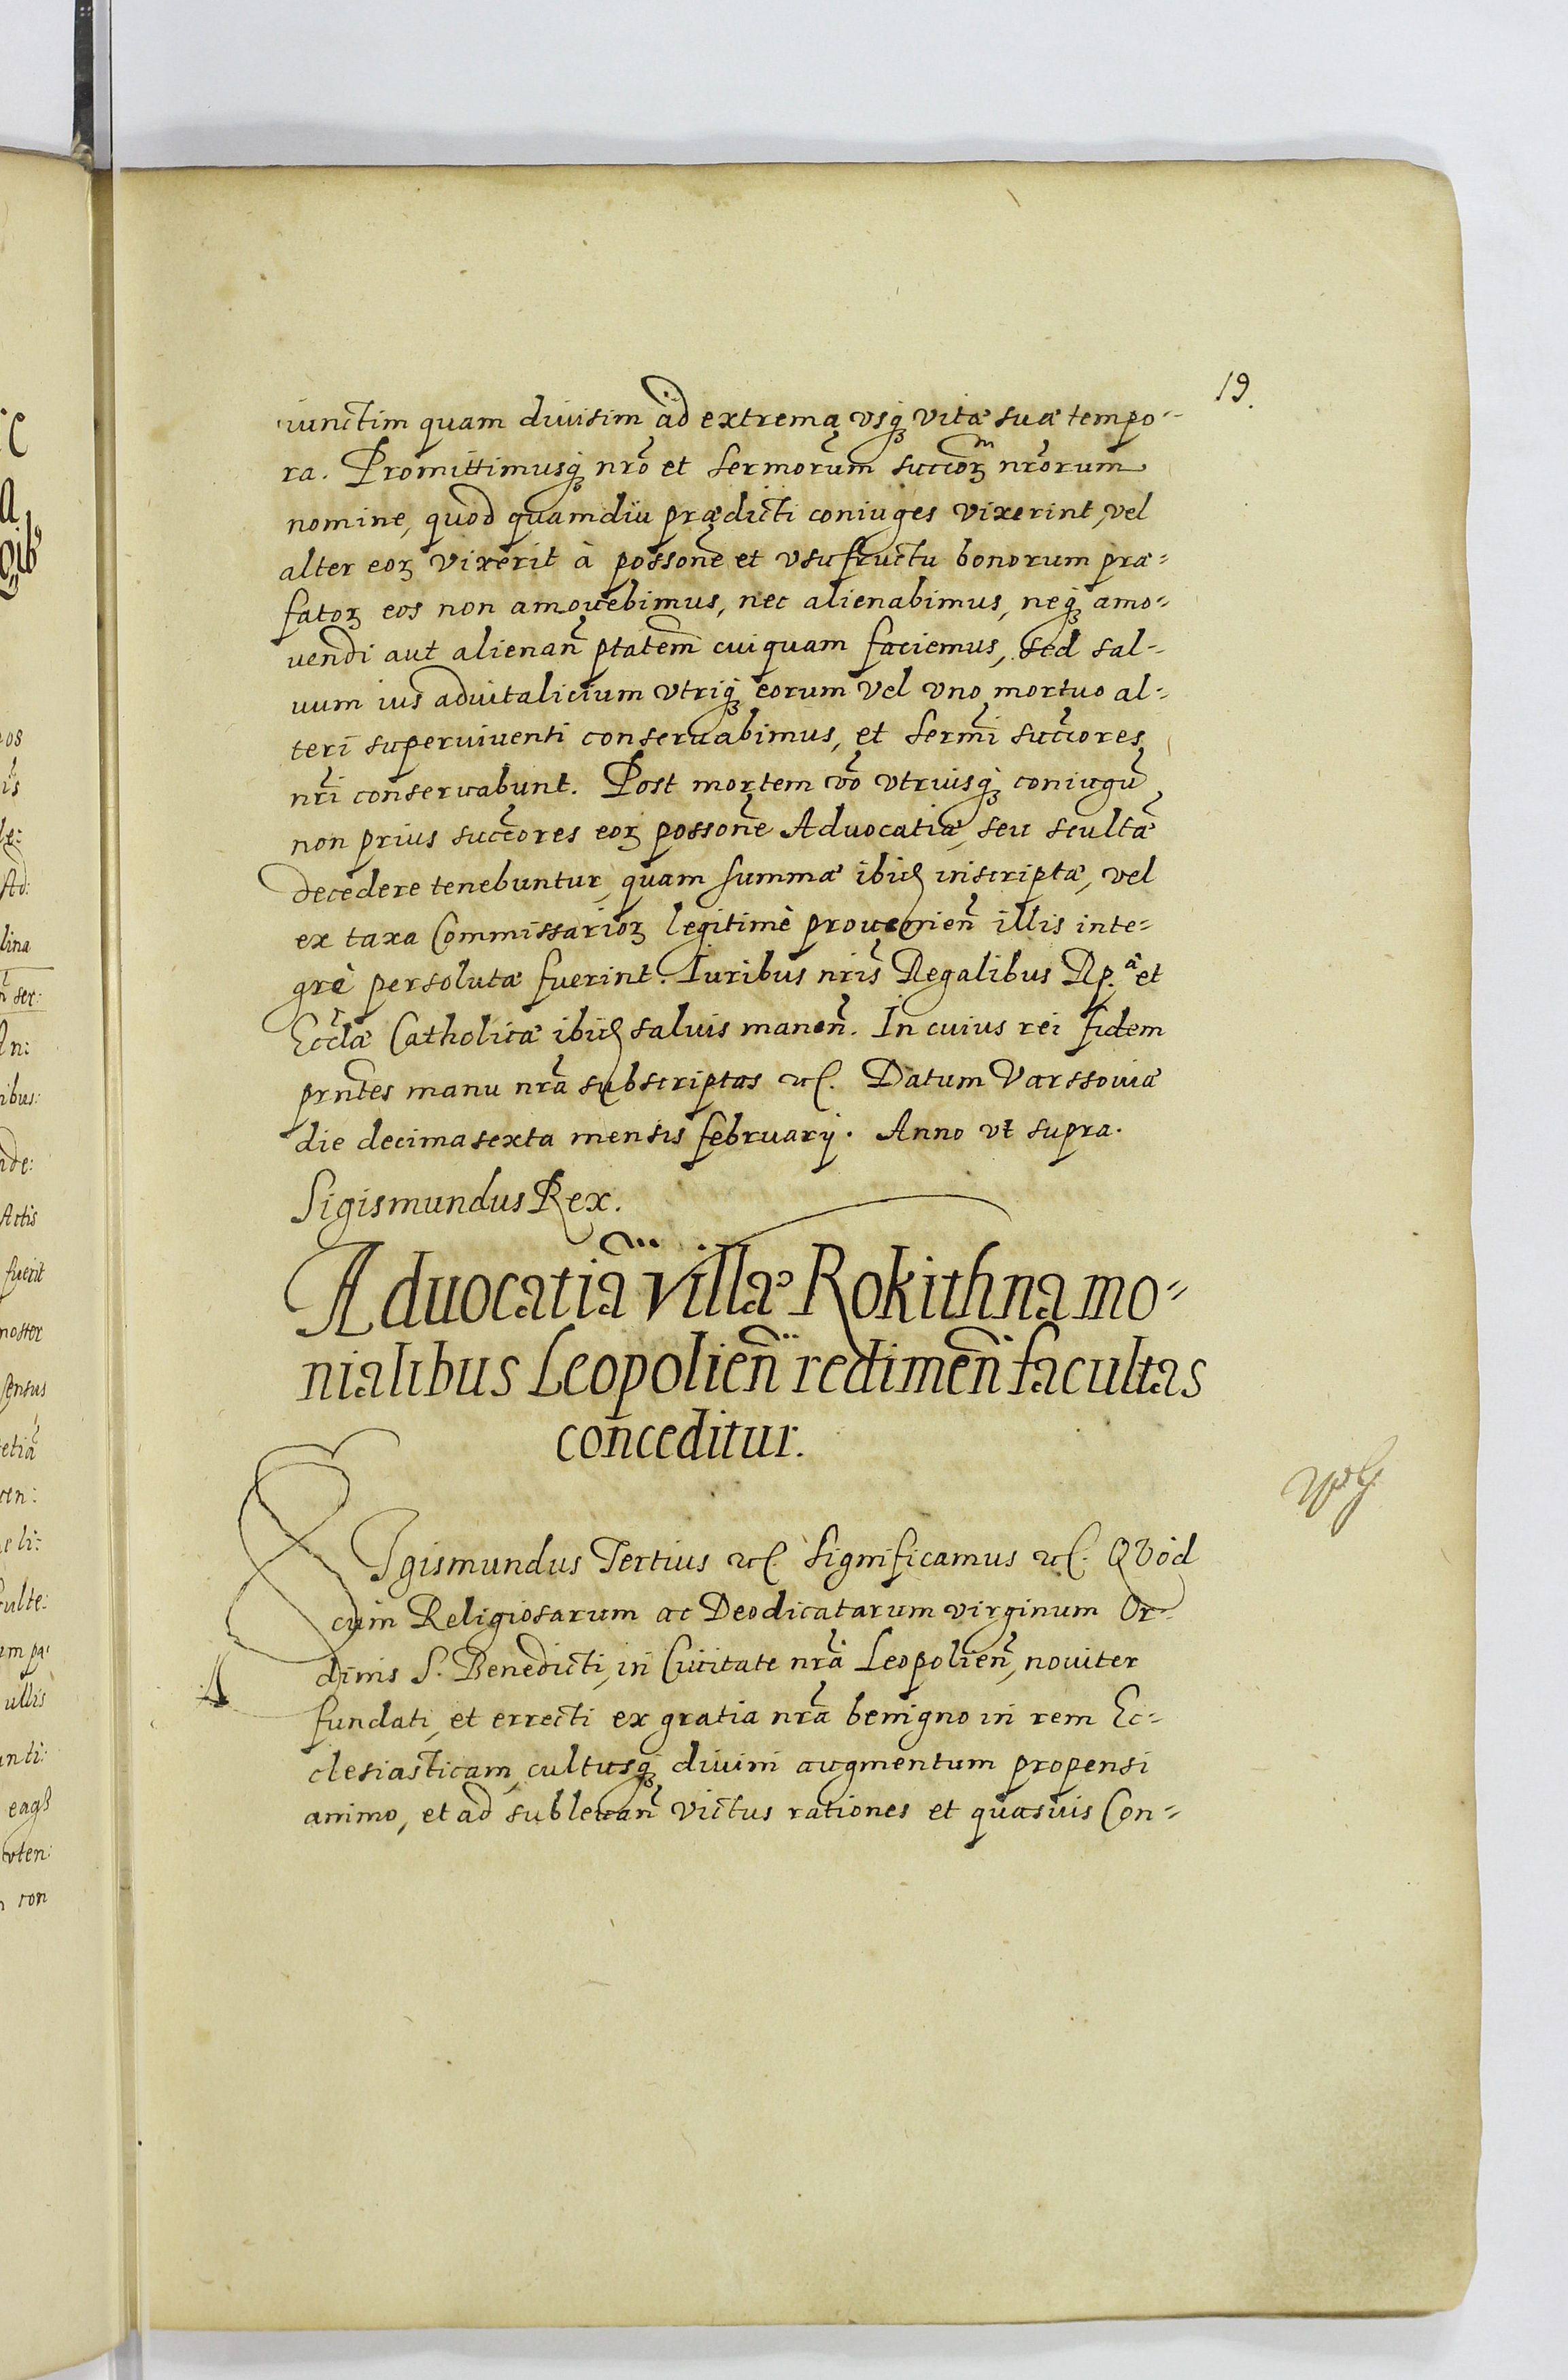 19.
iunctim quam diuisim ad extrema vsq₃ vitæ suæ tempo-
ra. Promittimusq₃ nr̃o et Sermorum succorꝝ nr̃orum
nomine, quod quamdiu prædicti coniuges vixerint, vel
alter eorꝝ vixerit à possone et vsufructu bonorum præ-
fatorꝝ eos non amouebimus, nec alienabimus, neq₃ amo-
uendi aut alienañ ptatem cuiquam faciemus, sed sal-
uum ius aduitalicium vtriq₃ eorum vel vno mortuo al-
teri superuiuenti conseruabimus, et Sermi succores
nr̃i conseruabunt. Post mortem vo vtriusq₃ coniugũ
non prius succores eorꝝ possone Aduocatiæ, seu scultæ
decedere tenebuntur, quam summæ ibid inscriptæ, vel
ex taxa Commissariorꝝ legitimè prouenieñ illis inte-
grè persolutæ fuerint. Iuribus nr̃is Regalibus Rp.ᵃ et
Eccl̃æ Catholicæ ibid saluis maneñ. In cuius rei fidem
prñtes manu nr̃a subscriptas etc. Datum Varssouiæ
die decima sexta mensis february. Anno vt supra.
Sigismundus Rex.
Aduocatiã villæ Rokithna mo-
nialibus Leopolieñ redimeñ facultas
conceditur.
SIgismundus Tertius etc. Significamus etc. QVod
cum Religiosarum ac Deodicatarum virginum Or-
dinis S. Benedicti, in Ciuitate nr̃a Leopolieñ, nouiter
fundati, et errecti ex gratia nr̃a benigno in rem Ec-
clesiasticam, cultusq₃ diuini augmentum propensi
animo, et ad subleuañ victus rationes et quasuis Con-